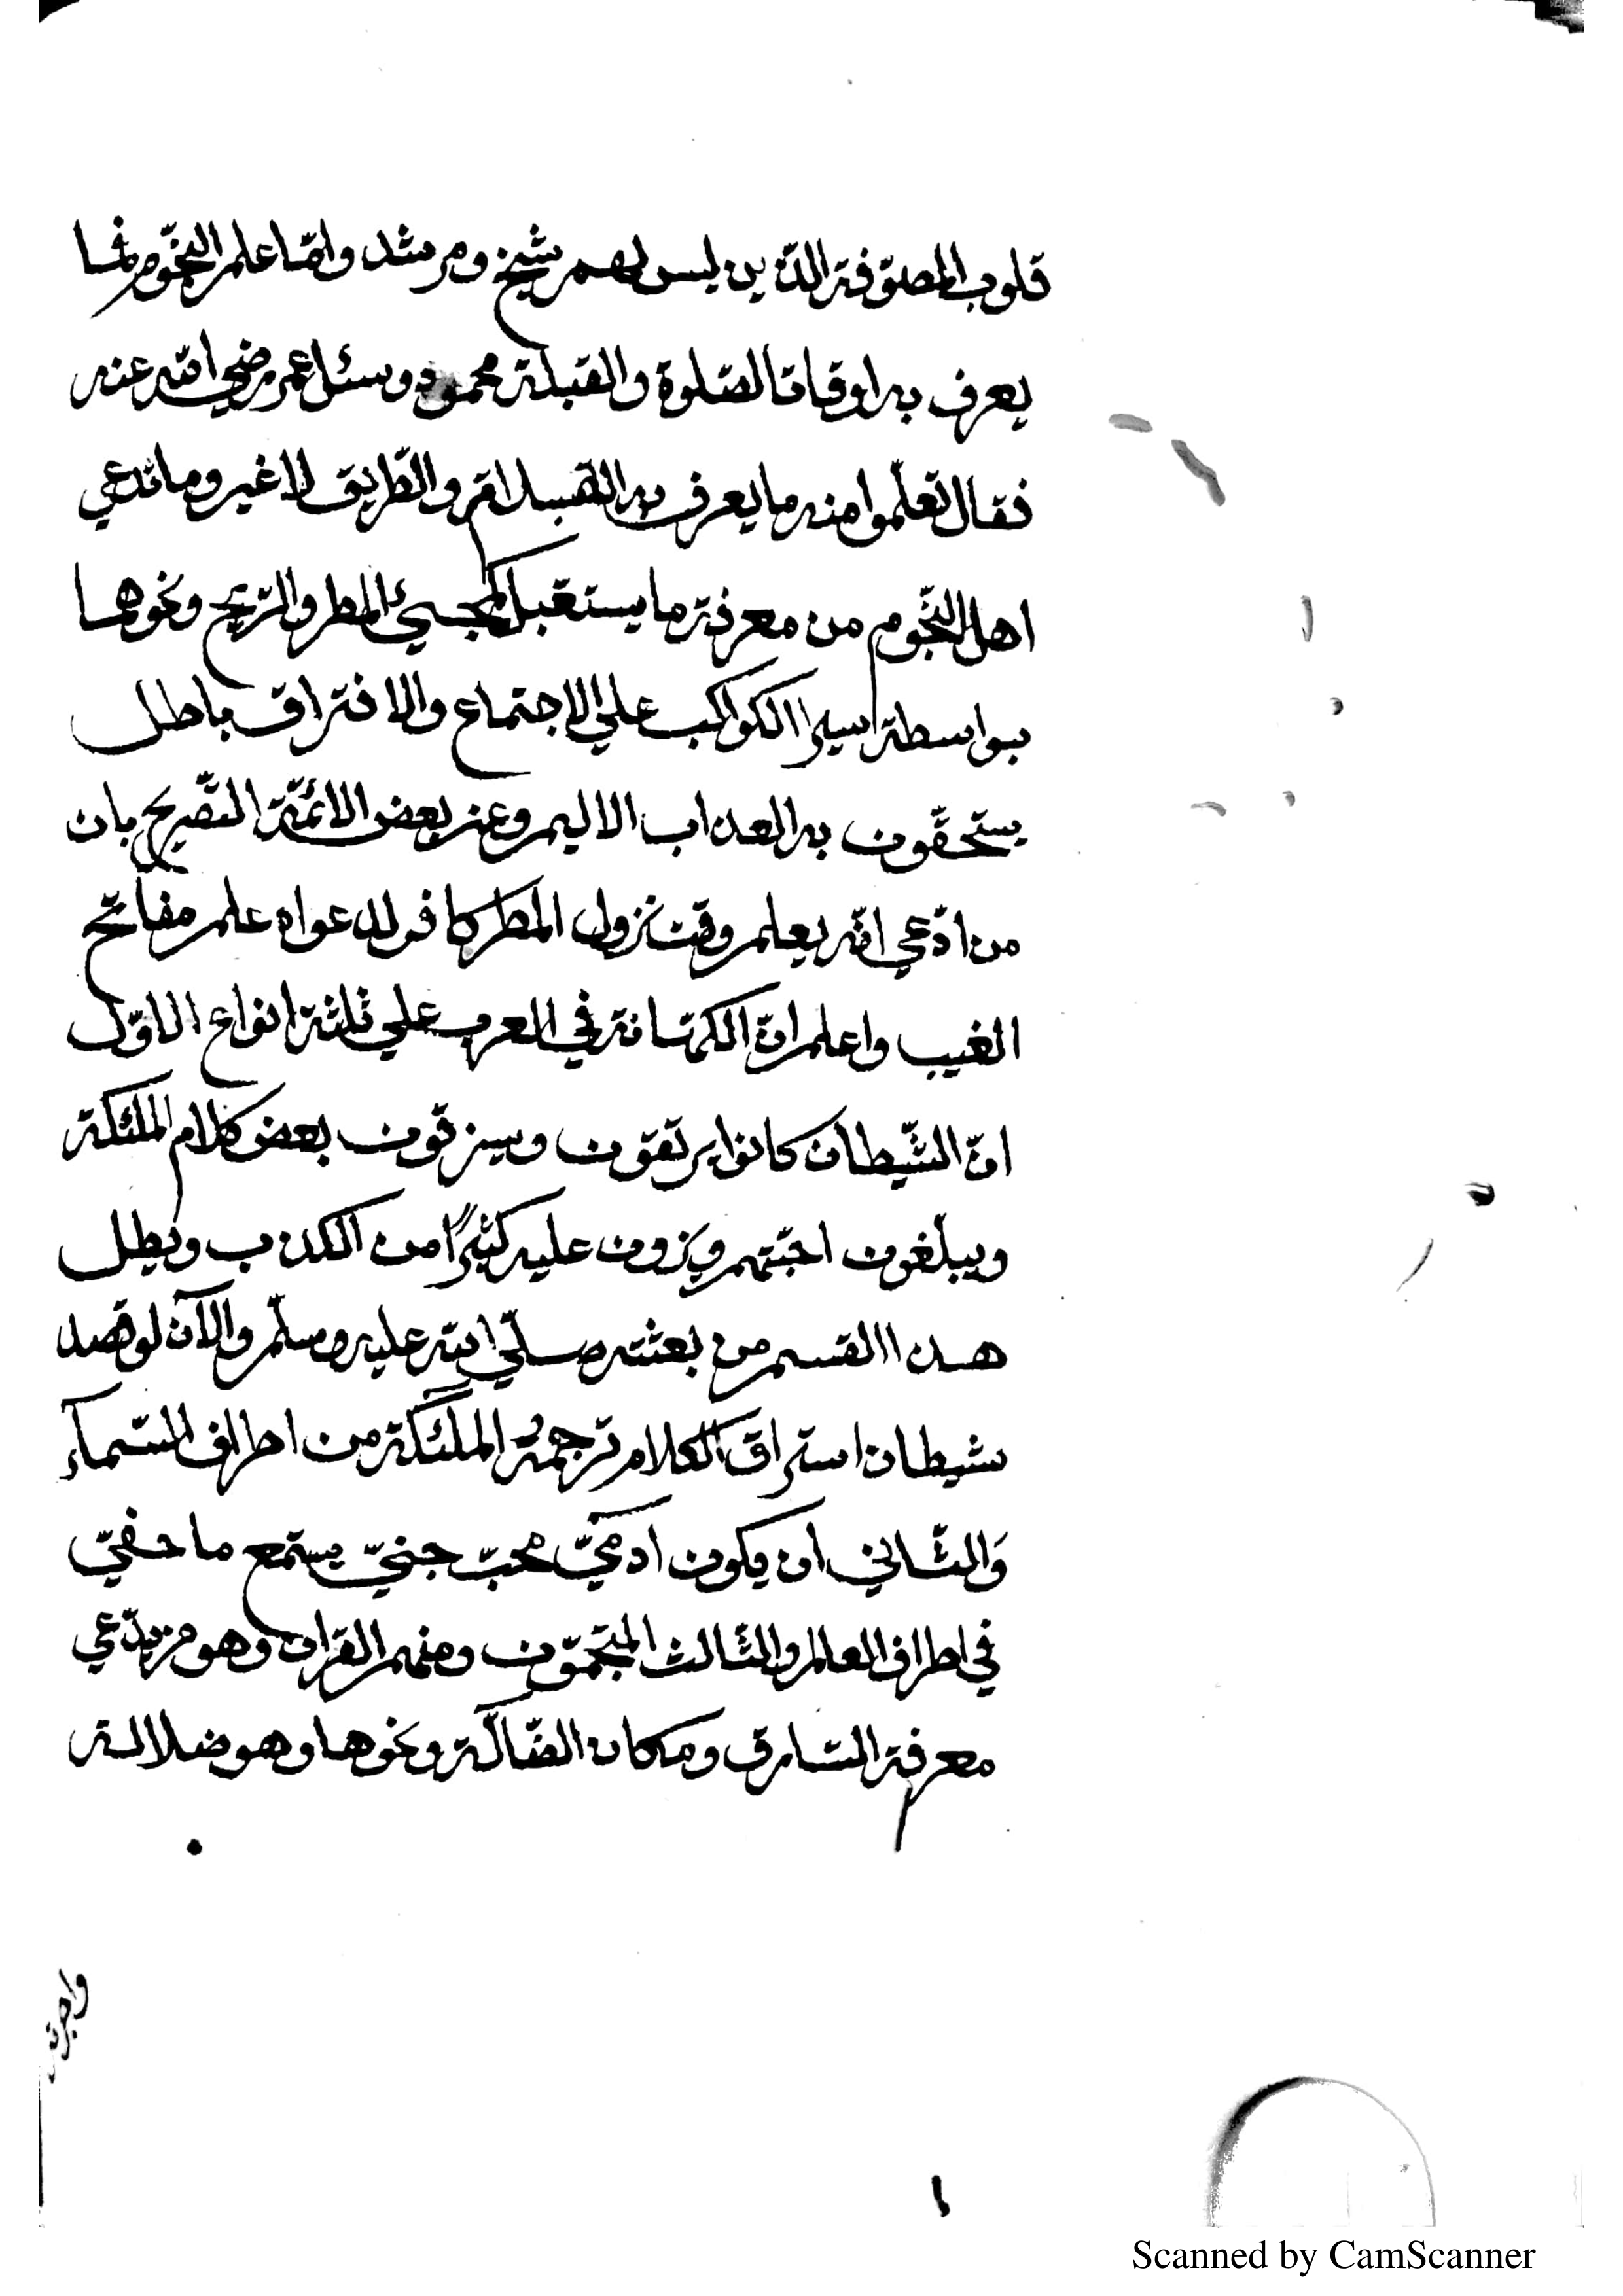 قلوب المصوّفة الذين ليس لهم شيخ ومرشد وامّا علم النجّوم فما
يعرف به اوقات الصّلوة والقبلة محمود وسئل عمر رضي الله عنه
فقال تعلّموا منه ما يعرف به القبلة والطّريق لا غير وما تدعي
اهل النّجوم من معرفة ما يستقبل كمجيئ المطر والرّيح ونحوها
بواسطة سير الكواكب علي الاجتماع والافتراق باطل
يستحقّون به العذاب الاليم وعن بعض الائمّة التّصريح بان
من ادّعي انّه يعلم وقت نزول المطر كافر لدعواه علم مفاتح
الغيب واعلم انّ الكهانة في العرب علي ثلثة انواع الاوّل
انّ الشّيطان كانوا يرتقون وسيزقون بعض كلام الملئكة
ويبلّغون احبّتهم ويزون عليه كثيرًا من الكذب وبطل
هذا القسم من بعثته صلّي الله عليه وسلّم والآن لو قصد
شيطان استراق الكلام ترجمه الملئكة من اطراف السّمآء
وَالثّاني ان يكون آدميّ محبّ جنيّ يستمع ما خفيّ
في اطراف العالم والثّالث المنجّمون ومنهم العراف وهو من يدّعي
معرفة السّارق ومكان الضّالّة ونحوها وهو ضلالة
Scanned by CamScanner